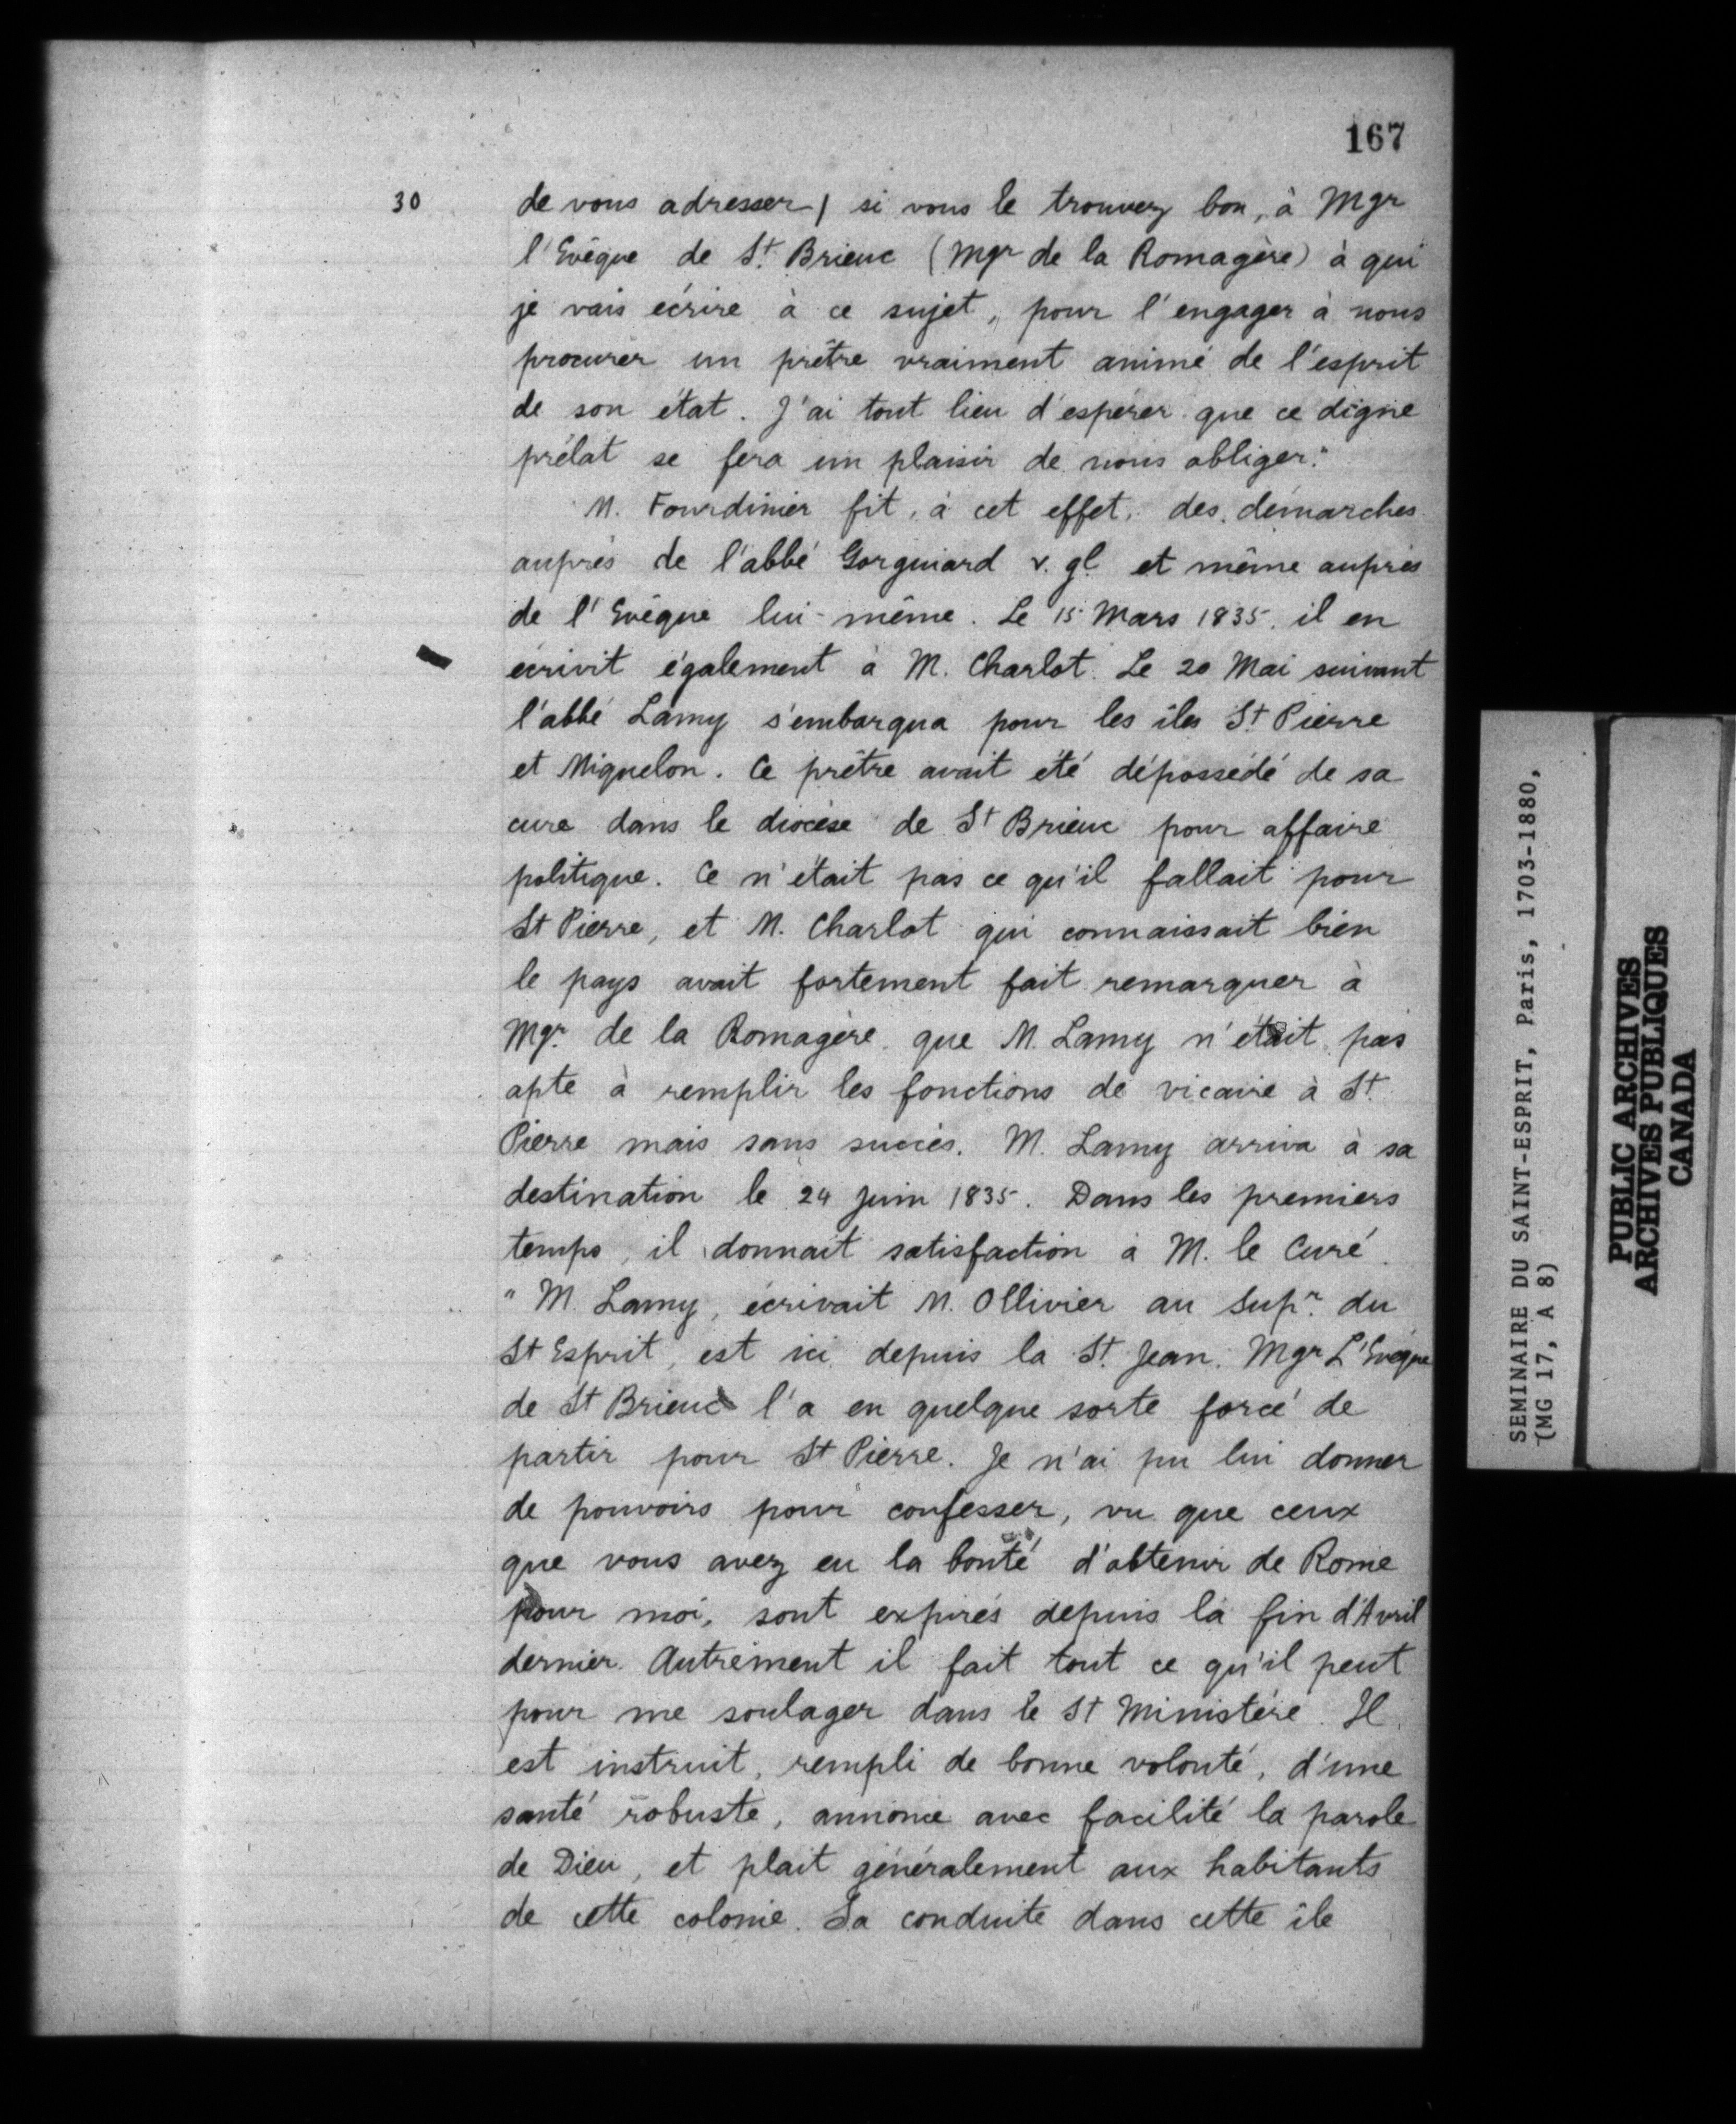 167
30
de vous adresser, si vous le trouvez bon, à Mgr
l'Evêque de St. Brieuc (Mgr de la Romagère) à qui
je vais écrire à ce sujet, pour l'engager à nous
procurer un prêtre vraiment animé de l'esprit
de son état. J'ai tout lieu d'espérer que ce digne
prélat se fera un plaisir de nous obliger."
M. Fourdinier fit, à cet effet, des démarches
auprès de l'abbé Gorguiard v. gl. et même auprès
de l'Evêque lui-même. Le 15 Mars 1835, il en
écrivit également à M. Charlot. Le 20 Mai suivant
l'abbé Lamy s'embarqua pour les îles St. Pierre
et Miquelon. Ce prêtre avait été dépossédé de sa
cure dans le diocèse de St Brieuc pour affaire
politique. Ce n'était pas ce qu'il fallait pour
St Pierre, et M. Charlot qui connaissait bien
le pays avait fortement fait remarquer à
Mgr. de la Romagère que M. Lamy n'était pas
apte à remplir les fonctions de vicaire à St.
Pierre mais sans succès. M. Lamy arriva à sa
destination le 24 Juin 1835. Dans les premiers
temps, il donnait satisfaction à M. le Curé.
"M. Lamy, écrivait M. Ollivier au Supr. du
St Esprit, est ici depuis la St. Jean. Mgr L'Evêque
de St Brieuc l'a en quelque sorte forcé de
partir pour St Pierre. Je n'ai pu lui donner
de pouvoirs pour confesser, vu que ceux
que vous avez eu la bonté d'obtenir de Rome
pour moi, sont expirés depuis la fin d'Avril
dernier. Autrement il fait tout ce qu'il peut
pour me soulager dans le St Ministère. Il
est instruit, rempli de bonne volonté, d'une
santé robuste, annonce avec facilité la parole
de Dieu, et plait généralement aux habitants
de cette colonie. Sa conduite dans cette île
SEMINAIRE DU SAINT-ESPRIT, Paris, 1703-1880,
(MG 17, A 8)
PUBLIC ARCHIVES
ARCHIVES PUBLIQUES
CANADA